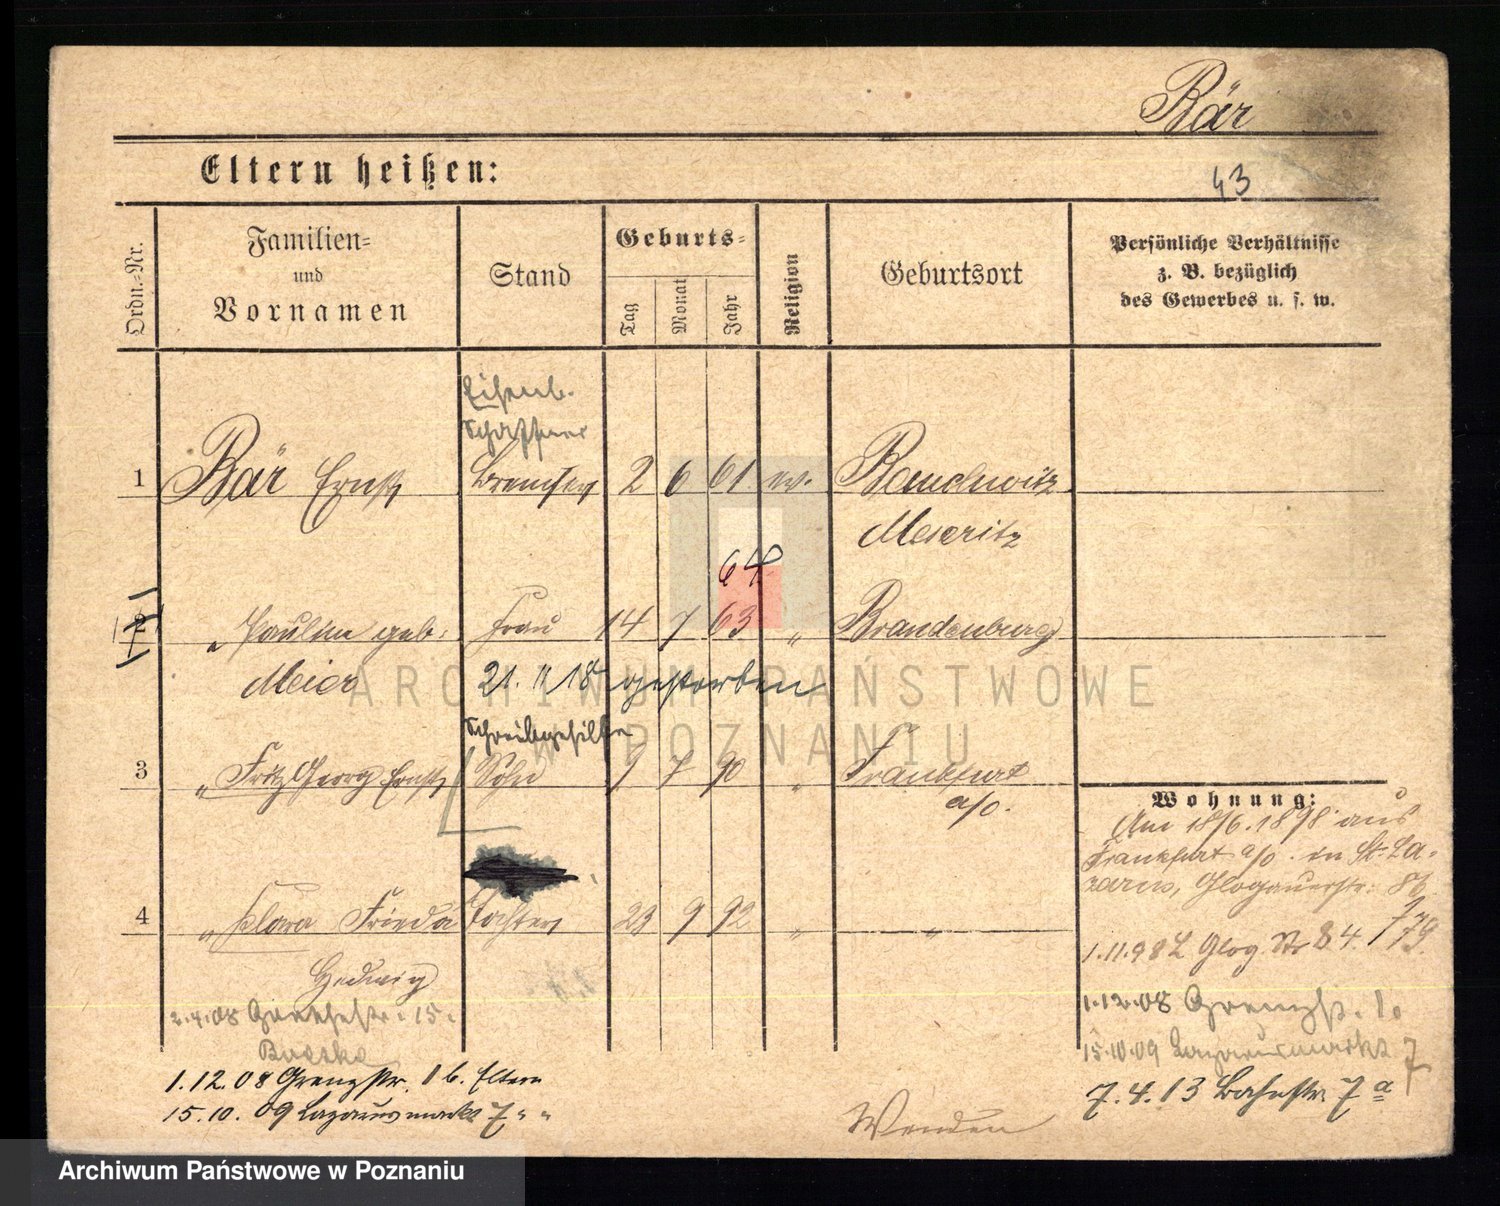 Bär
43
Eltern heißen:
Ordn.-Nr.
Familien-
und
Vornamen
Stand
Geburts-
Tag
Monat
Jahr
Religion
Geburtsort
Persönliche Verhältnisse
z. B. bezüglich
des Gewerbes u. s. w.
Eisenb.
Schaffner
1 Bär Ernst Bremser 2 6 61 ev. Bauchwitz
Meseritz
64
2 " Pauline geb. Frau 14 7 63 " Brandenburg
Meier 21. 11 18 gestorben
Schreibgehilfe
3 " Fritz Georg Ernst Sohn 9 7 90 " Frankfurt
a/O.
4 " Klara Frieda Tochter 23 9 92 " "
Hedwig
2.4.08 15.
1.12.08 Grenzstr. 16. Eltern
15.10.09 Lazarusmarkt 7 " "
Wohnung:
Am 18/6.1898 aus
Frankfurt a/O. in St. La-
zarus, Glogauerstr:
1.11.98 Glog. Str 84.
1.12.08 Grenzstr.
15.10.09 Lazarusmarkt 7
7.4.13 Bahnstr. 7a
Wenden
ARCHIWUM PAŃSTWOWE
W POZNANIU
Archiwum Państwowe w Poznaniu